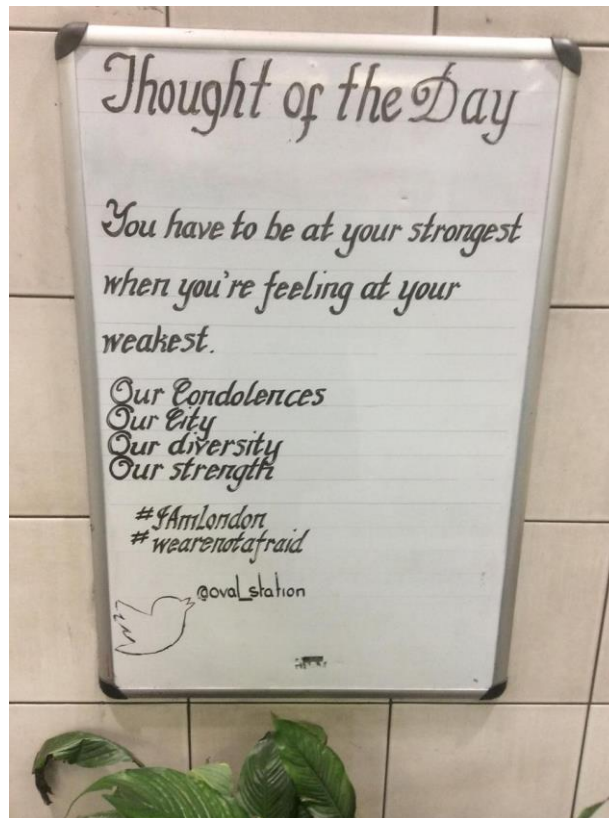 Thought of the Day
You have to be at your strongest
when you're feeling at your
weakest.
Our Condolences
Our City
Our diversity
Our strength
#IAmlondon
#wearenotafraid
@oval_station